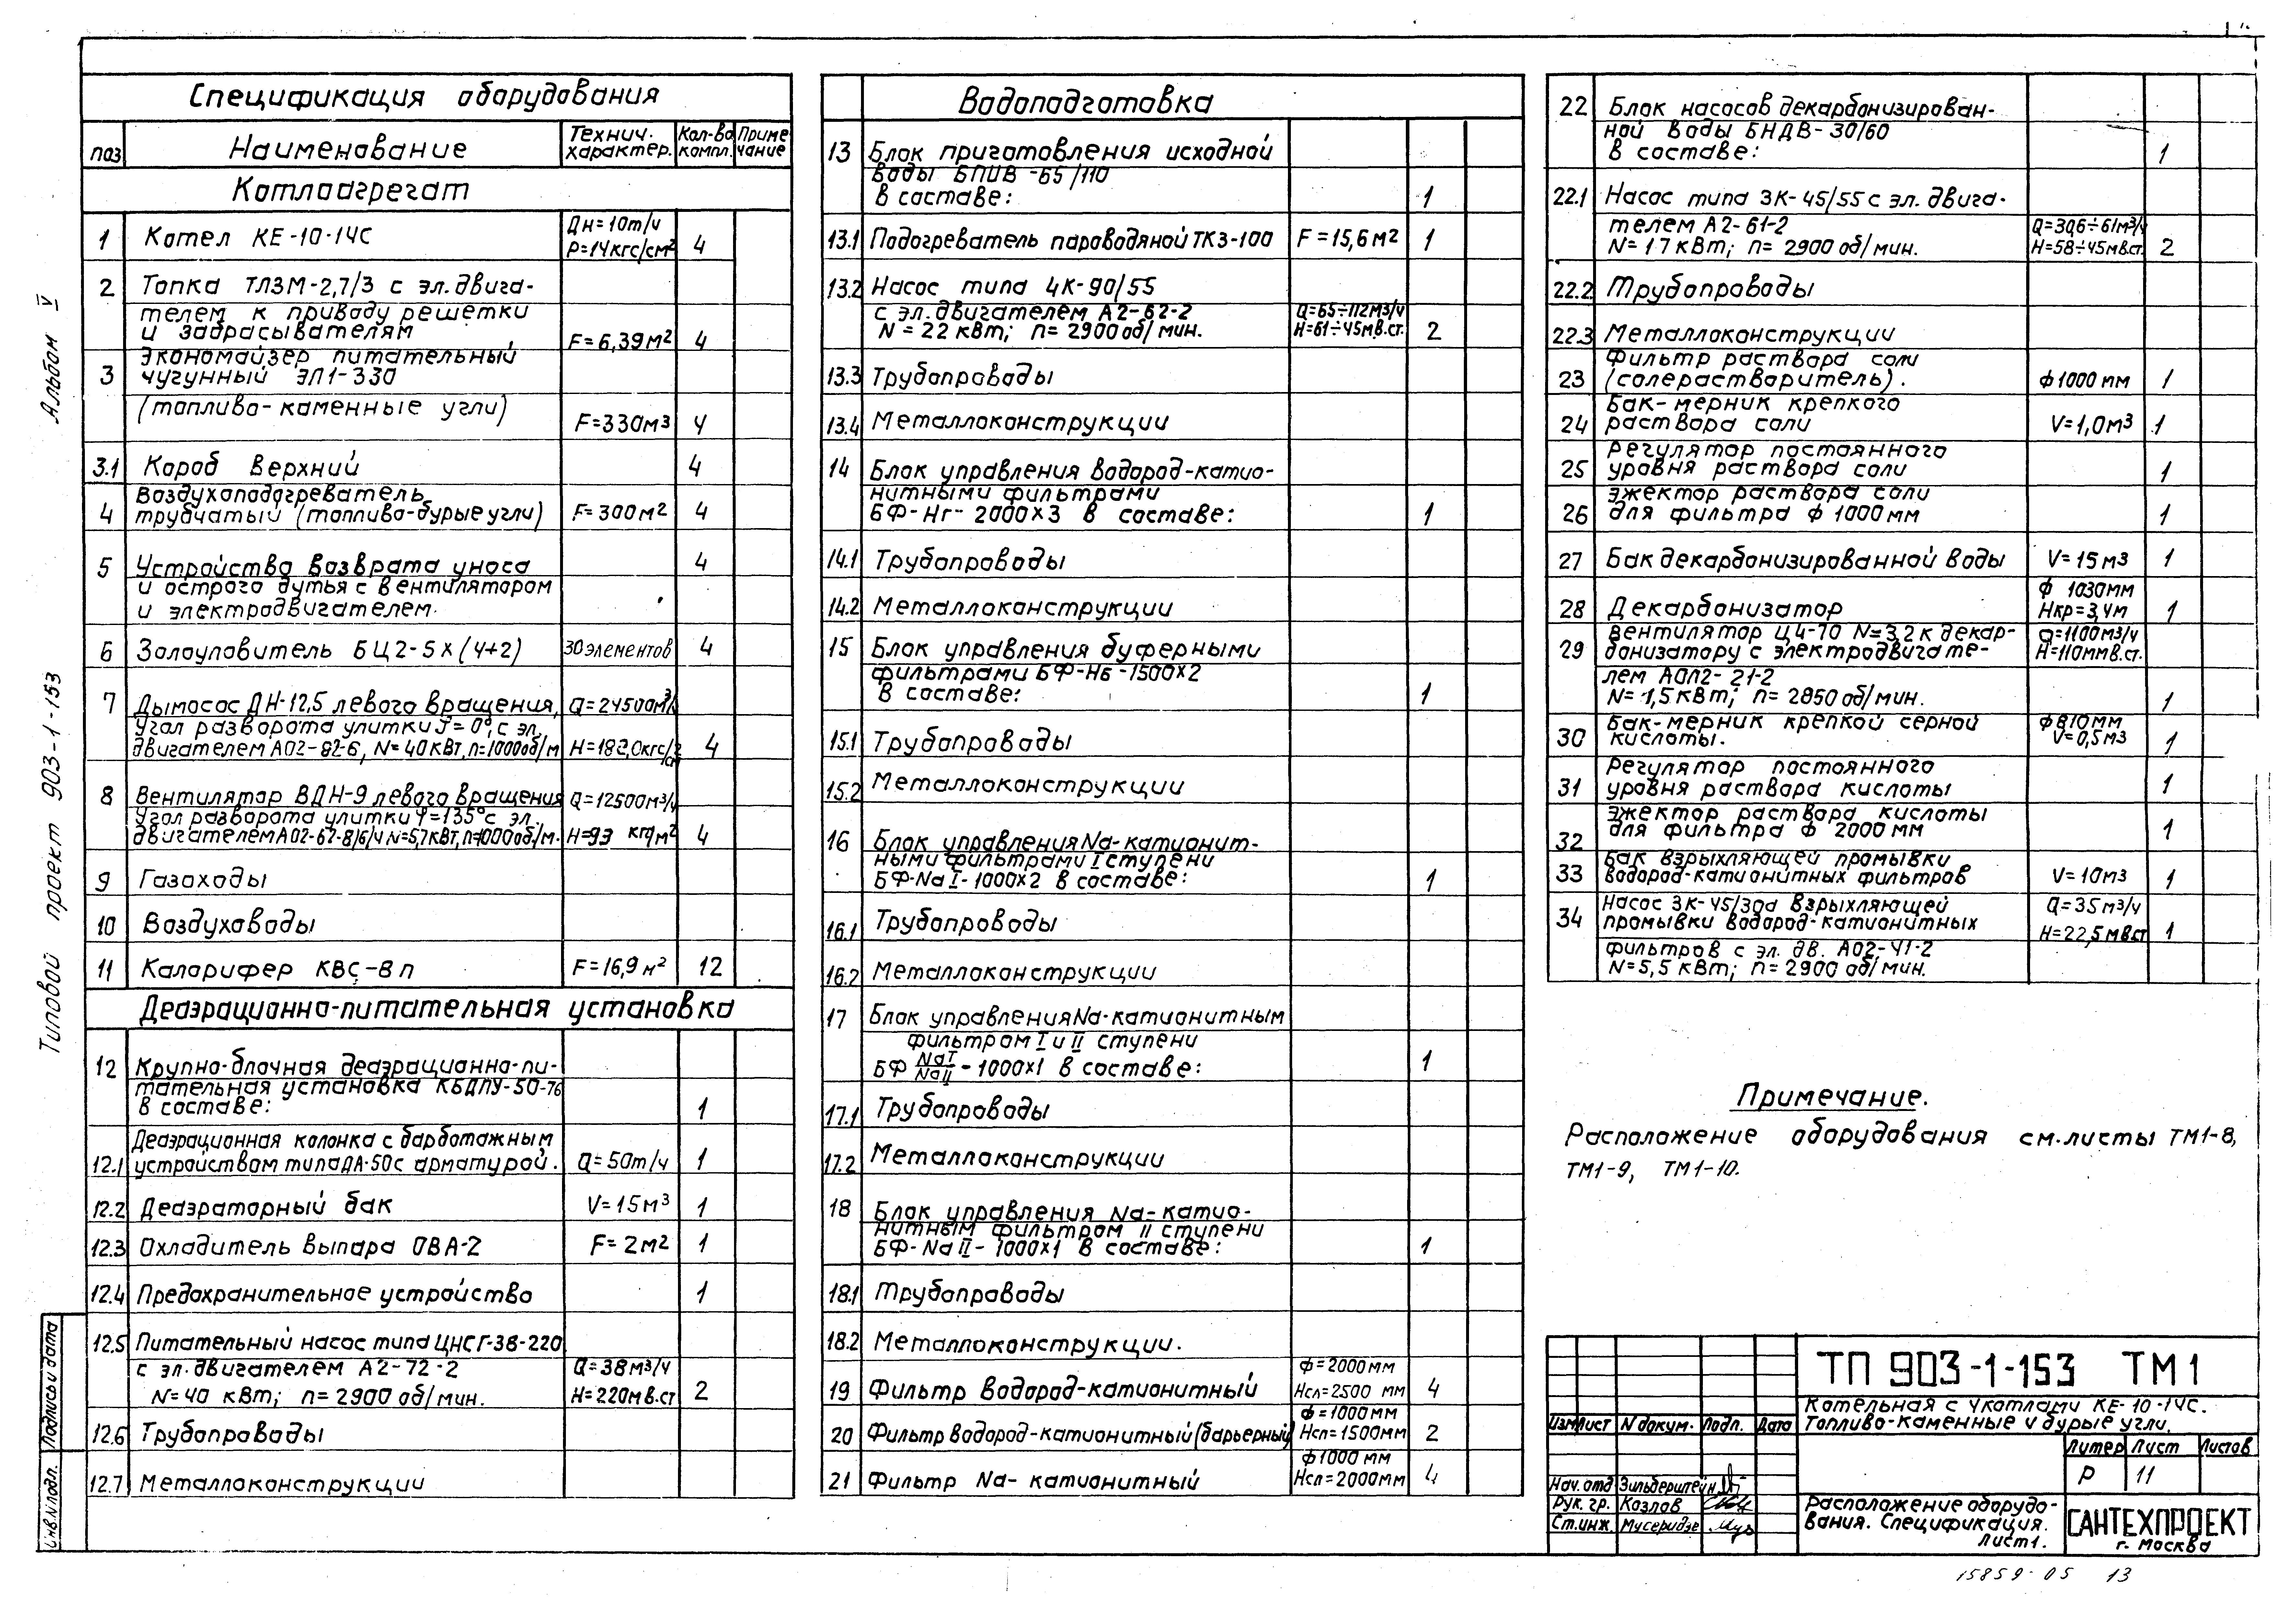 Спецификация оборудования
поз Наименование Технич. характер. Кол-во компл. Приме-чание
Котлоагрегат
1 Котел КЕ-10-14С Дн=10т/ч Р=14кгс/см² 4
2 Топка ТЛЗМ-2,7/3 с эл.двига-
телем к приводу решетки
и забрасывателям F=6,39м² 4
3 Экономайзер питательный
чугунный ЭП1-330
(топливо-каменные угли) F=330м³ 4
3.1 Короб верхний 4
4 Воздухоподогреватель
трубчатый (топливо-бурые угли) F=300м² 4
5 Устройство возврата уноса 4
и острого дутья с вентилятором
и электродвигателем.
6 Золоуловитель БЦ2-5х(4+2) 30 элементов 4
7 Дымосос ДН-12,5 левого вращения, Q=24500м³/ч
Угол разворота улитки φ=0°, с эл.
двигателем АО2-82-6, N=40кВт, n=1000об/м H=182,0кгс/ 4
8 Вентилятор ВДН-9 левого вращения Q=12500м³/ч
Угол разворота улитки φ=135° с эл.
двигателем АО2-62-8/6/4 N=5,7кВт, n=1000об/м. H=93 кг/м² 4
9 Газоходы
10 Воздуховоды
11 Калорифер КВС-8п F=16,9м² 12
Деаэрационно-питательная установка
12 Крупно-блочная деаэрационно-пи-
тательная установка КБДПУ-50-76
в составе: 1
12.1 Деаэрационная колонка с барботажным
устройством типа ДА-50 с арматурой. Q=50т/ч 1
12.2 Деаэраторный бак V=15м³ 1
12.3 Охладитель выпара ОВА-2 F=2м² 1
12.4 Предохранительное устройство 1
12.5 Питательный насос типа ЦНСГ-38-220
с эл.двигателем А2-72-2 Q=38м³/ч
N=40 кВт; n=2900 об/мин. H=220м в.ст 2
12.6 Трубопроводы
12.7 Металлоконструкции
Водоподготовка
13 Блок приготовления исходной
воды БПИВ-65/110
в составе: 1
13.1 Подогреватель пароводяной ТКЗ-100 F=15,6м² 1
13.2 Насос типа 4К-90/55
с эл.двигателем А2-62-2 Q=65÷112м3/ч
N=22 кВт; n=2900об/мин. H=61÷45м в.ст. 2
13.3 Трубопроводы
13.4 Металлоконструкции
14 Блок управления водород-катио-
нитными фильтрами
БФ-Нг-2000х3 в составе: 1
14.1 Трубопроводы
14.2 Металлоконструкции
15 Блок управления буферными
фильтрами БФ-НБ-1500х2
в составе: 1
15.1 Трубопроводы
15.2 Металлоконструкции
16 Блок управления Na-катионит-
ными фильтрами I ступени
БФ-Na I-1000х2 в составе: 1
16.1 Трубопроводы
16.2 Металлоконструкции
17 Блок управления Na-катионитным
фильтром I и II ступени
БФ NaI/NaII-1000х1 в составе: 1
17.1 Трубопроводы
17.2 Металлоконструкции
18 Блок управления Na-катио-
нитным фильтром II ступени
БФ-Na II-1000х1 в составе: 1
18.1 Трубопроводы
18.2 Металлоконструкции.
19 Фильтр водород-катионитный ф=2000мм Нсл=2500 мм 4
20 Фильтр водород-катионитный (барьерный) ф=1000мм Нсл=1500мм 2
21 Фильтр Na-катионитный ф1000 мм Нсл=2000мм 4
22 Блок насосов декарбонизирован-
ной воды БНДВ-30/60
в составе: 1
22.1 Насос типа 3К-45/55 с эл. двига-
телем А2-61-2 Q=30,6÷61м³/ч
N=17кВт; n=2900 об/мин. H=58÷45м в.ст. 2
22.2 Трубопроводы
22.3 Металлоконструкции
23 Фильтр раствора соли
(солерастворитель). ф1000 мм 1
24 Бак-мерник крепкого
раствора соли V=1,0м3 1
25 Регулятор постоянного
уровня раствора соли 1
26 Эжектор раствора соли
для фильтра ф 1000мм 1
27 Бак декарбонизированной воды V=15м3 1
28 Декарбонизатор ф 1030мм Нкр=3,4м 1
29 Вентилятор Ц4-70 N=3,2 к декар- Q=1100м3/ч
бонизатору с электродвигате- H=110мм в.ст.
лем АОЛ2-21-2
N=1,5кВт; n=2850об/мин. 1
30 Бак-мерник крепкой серной ф810мм
кислоты. V=0,5м3 1
31 Регулятор постоянного
уровня раствора кислоты 1
32 Эжектор раствора кислоты
для фильтра ф 2000мм 1
33 Бак взрыхляющей промывки
водород-катионитных фильтров V=10м3 1
34 Насос 3К-45/30а взрыхляющей Q=35м³/ч
промывки водород-катионитных H=22,5м в.ст 1
фильтров с эл. дв. АО2-41-2
N=5,5 кВт; n=2900 об/мин.
Примечание.
Расположение оборудования см.листы ТМ1-8,
ТМ1-9, ТМ1-10.
ТП 903-1-153 ТМ1
Котельная с 4 котлами КЕ-10-14С.
Топливо-каменные и бурые угли.
Изм Лист N докум. Подп. Дата
Литер Лист Листов
Р 11
Нач.отд Зильберштейн
Рук. гр. Козлов
Ст.инж. Мусеридзе
Расположение оборудо-
вания. Спецификация.
Лист1.
САНТЕХПРОЕКТ
г. Москва
15859-05 13
Типовой проект 903-1-153 Альбом V
Инв.N подл. Подпись и дата